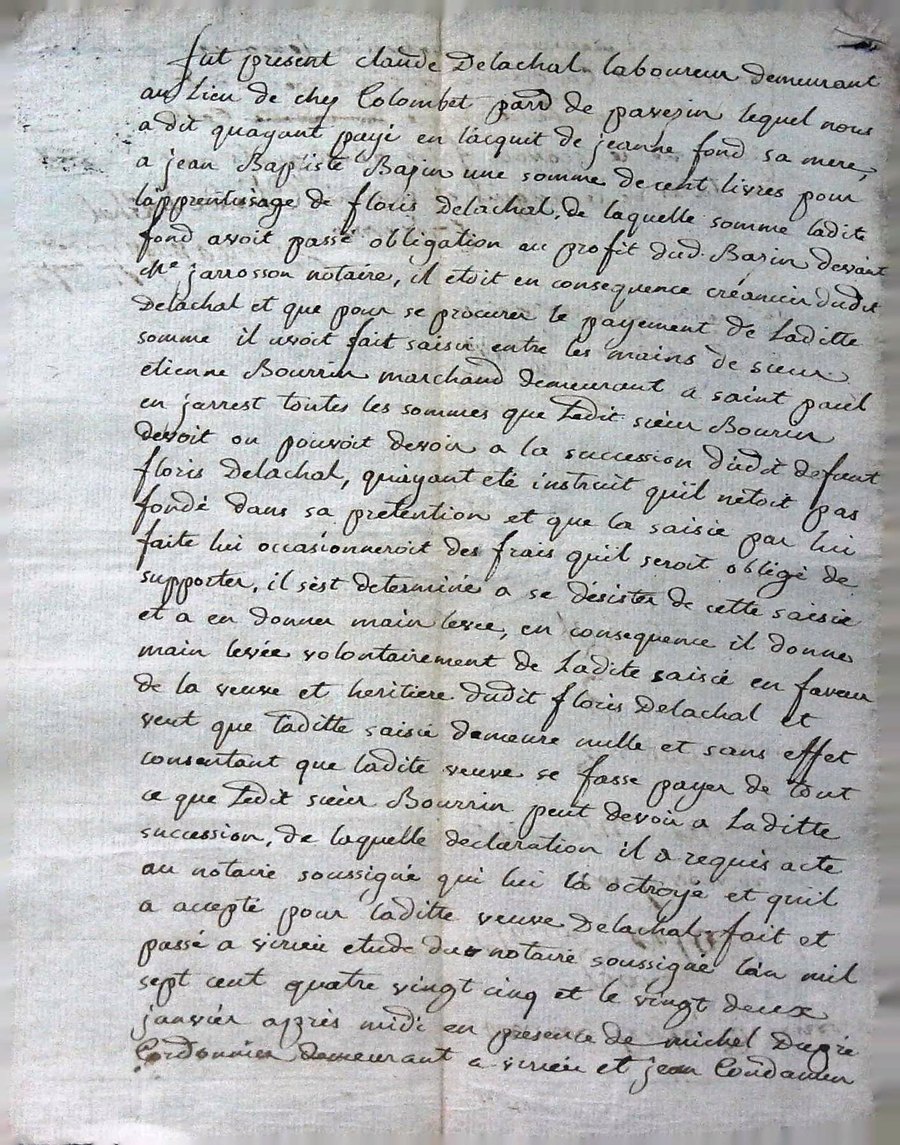 fut present claude Delachal laboureur demeurant
au Lieu de chez Colombet parr de pavezin lequel nous
a dit quayant payé en lacquit de jeanne fond sa mere,
a jean Baptiste Bazin une somme de cent livres pour
lapprentissage de floris Delachal, de laquelle somme ladite
fond avoit passé obligation au profit dud. Bazin devant
Me jarrosson notaire, il etoit en consequence créancier dudit
Delachal et que pour se procurer le payement de Laditte
somme il avoit fait saisir entre les mains de sieur
etienne Bourrin marchand demeurant a saint paul
en jarrest toutes les sommes que Ledit sieur Bourin
devoit ou pouvoit devoir a la succession dudit defunt
floris Delachal, quayant eté instruit quil netoit pas
fondé dans sa pretention et que la saisie par lui
faite lui occasionneroit des frais quil seroit obligé de
supporter, il sest determiné a se désister de cette saisie
et a en donner main levee, en consequence il donne
main levée volontairement de Ladite saisie en faveur
de la veuve et heritiere dudit floris Delachal et
veut que laditte saisie demeure nulle et sans effet
consentant que ladite veuve se fasse payer de tout
ce que Ledit sieur Bourrin peut devoir a Laditte
succession, de laquelle declaration il a requis acte
au notaire soussigné qui lui la octroyé et quil
a accepté pour laditte veuve Delachal fait et
passé a virieu etude du notaire soussigné lan mil
sept cent quatre vingt cinq et le vingt deux
janvier apres midi en presence de michel Dupré
Cordonnier demeurant a virieu et jean Condamin